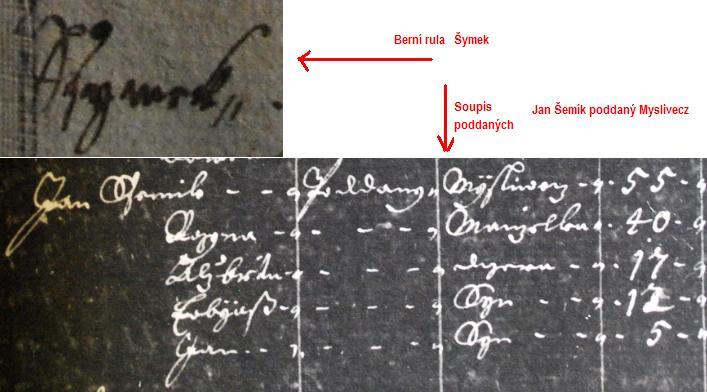 Berní rula Šymek
Ssymek
Soupis
poddaných
Jan Šemík poddaný Myslivecz
Jan Ssemik - - Poddany Mysliwecz - 55 -
Rozyna - - - - Manzelka - 40 -
Alzběta - - - - dczera - 17 -
Tobyáss - - - - Syn - - 12 -
Jan - - - - - Syn - - 5 -